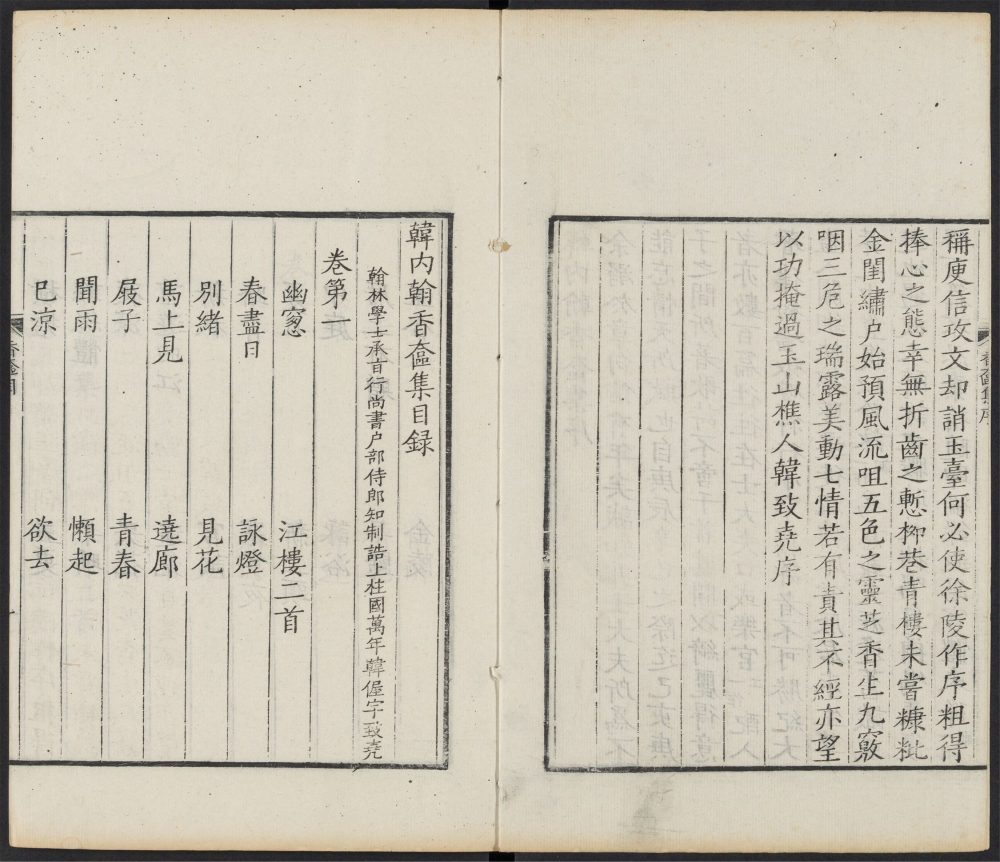 稱庾信攻文却誚玉臺何必使徐陵作序粗得
捧心之態幸無折齒之慙柳巷青樓未嘗糠粃
金閨繡户始預風流咀五色之靈芝香生九竅
咽三危之瑞露美動七情若有責其不經亦望
以功掩過玉山樵人韓致堯序
韓内翰香奩集目録
翰林學士承旨行尚書户部侍郎知制誥上柱國萬年韓偓字致堯
卷第一
幽窓 江樓二首
春盡日 詠燈
別緒 見花
馬上見 遶廊
屐子 青春
聞雨 懶起
已涼 欲去